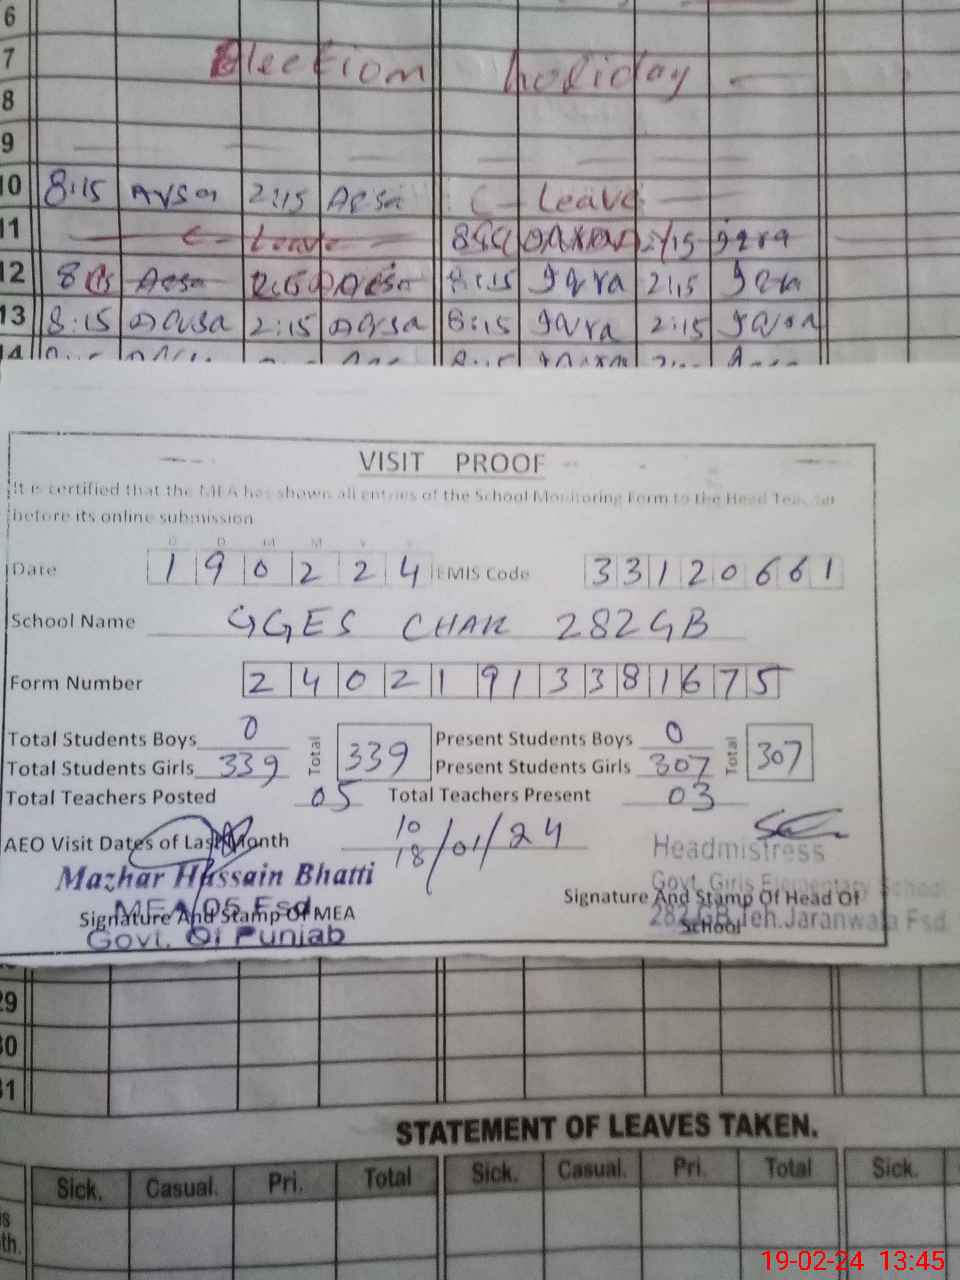 6
7 Election holiday
8
9
10 8:15 2:15 C- Leave
11 C- Leave 2:15 Iqra
12 8:15 Aqsa Aqsa 8:15 Iqra 2:15 Iqra
13 8:15 Aqsa 2:15 Aqsa 8:15 Iqra 2:15 Iqra
14
VISIT PROOF
It is certified that the MEA has shown all entries of the School Monitoring Form to the Head Teacher
before its online submission
D D M M Y Y
Date 1 9 0 2 2 4 EMIS Code 3 3 1 2 0 6 6 1
School Name GGES CHAK 282GB
Form Number 2 4 0 2 1 9 1 3 3 8 1 6 7 5
Total Students Boys 0 Total 339 Present Students Boys 0 Total 307
Total Students Girls 339 Present Students Girls 307
Total Teachers Posted 05 Total Teachers Present 03
AEO Visit Dates of Last Month 10 18/01/24
Headmistress
Mazhar Hussain Bhatti
Govt. Girls Elementary School
MEA 05 Fsd
Signature And Stamp Of MEA Signature And Stamp Of Head Of School
Govt. Of Punjab 282 GB Teh.Jaranwala Fsd
29
30
31
STATEMENT OF LEAVES TAKEN.
Sick. Casual. Pri. Total Sick. Casual. Pri. Total Sick.
th.
19-02-24 13:45